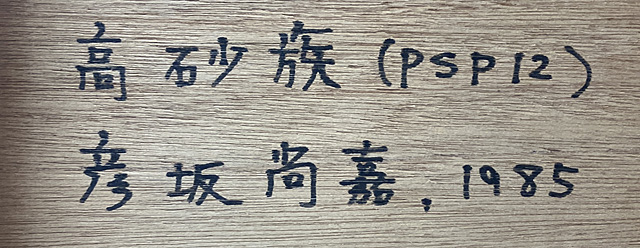 高砂族(PSP12)
彦坂尚嘉,1985